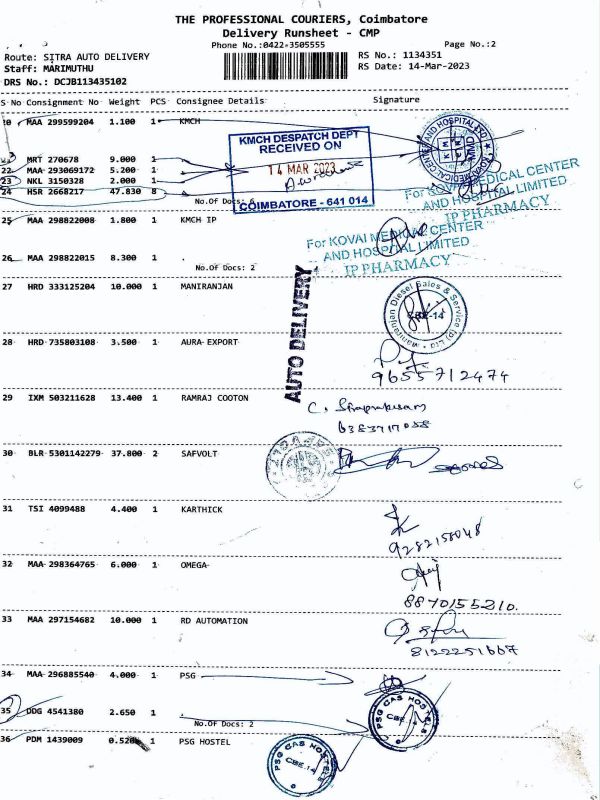 THE PROFESSIONAL COURIERS, Coimbatore
Delivery Runsheet - CMP
Phone No.:0422-3505555
Page No.:2
Route: SITRA AUTO DELIVERY
RS No.: 1134351
Staff: MARIMUTHU
RS Date: 14-Mar-2023
DRS No.: DCJB113435102
S No Consignment No Weight PCS Consignee Details Signature
20 MAA 299599204 1.100 1 KMCH
MRT 270678 9.000 1
22 MAA 293069172 5.200 1
23 NKL 3150328 2.000 1
24 HSR 2668217 47.830 8
No.Of Docs:
KMCH DESPATCH DEPT
RECEIVED ON
14 MAR 2023
COIMBATORE - 641 014
For KOVAI MEDICAL CENTER
AND HOSPITAL LIMITED
IP PHARMACY
25 MAA 298822008 1.800 1 KMCH IP
For KOVAI MEDICAL CENTER
AND HOSPITAL LIMITED
IP PHARMACY
26 MAA 298822015 8.300 1
No.Of Docs: 2
27 HRD 333125204 10.000 1 MANIRANJAN
Maniranjan Diesel Sales & Service (P) Ltd
CBE-14
AUTO DELIVERY
28 HRD 735803108 3.500 1 AURA EXPORT
9655712474
29 IXM 503211628 13.400 1 RAMRAJ COOTON
C. Sivaprakasam
6383717058
30 BLR 5301142279 37.800 2 SAFVOLT
31 TSI 4099488 4.400 1 KARTHICK
9282158048
32 MAA 298364765 6.000 1 OMEGA
8870155210.
33 MAA 297154682 10.000 1 RD AUTOMATION
8122251667
34 MAA 296885540 4.000 1 PSG
35 DDG 4541380 2.650 1
No.Of Docs: 2
PSG CAS HOSTELS
CBE
36 PDM 1439009 0.520 1 PSG HOSTEL
PSG CAS HOSTELS
CBE-14